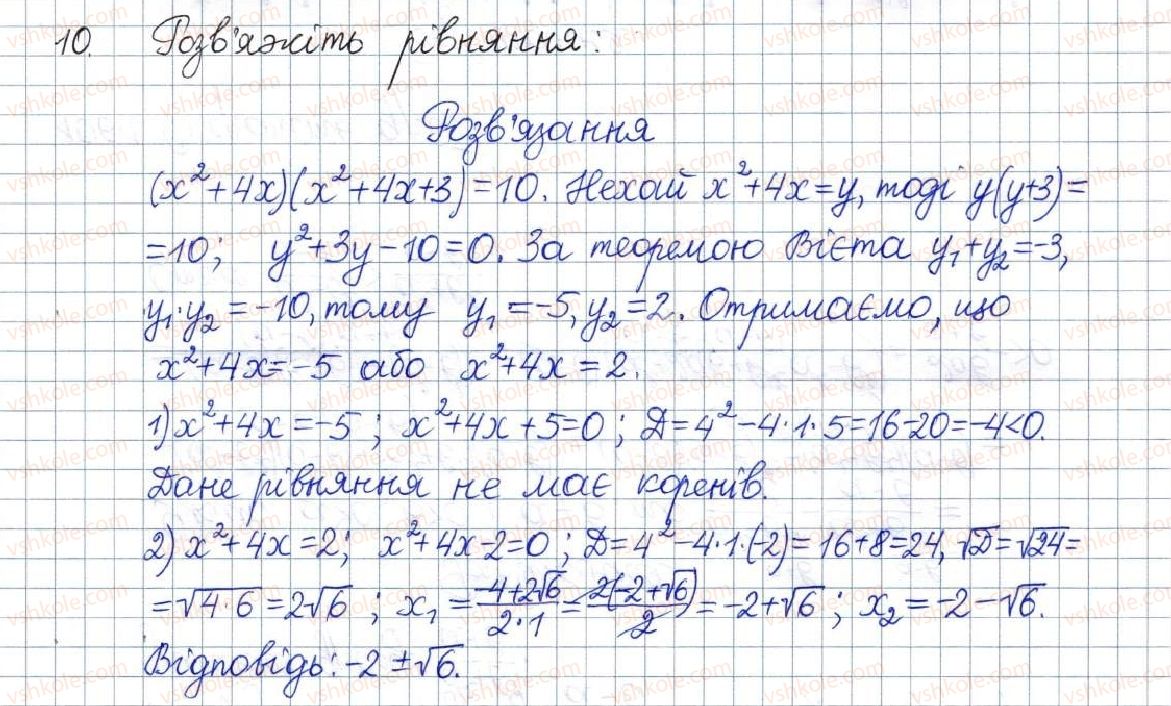 10. Розв'яжіть рівняння:
Розв'язання
(x²+4x)(x²+4x+3)=10. Нехай x²+4x=y, тоді y(y+3)=
=10; y²+3y-10=0. За теоремою Вієта y₁+y₂=-3,
y₁·y₂=-10, тому y₁=-5, y₂=2. Отримаємо, що
x²+4x=-5 або x²+4x=2.
1) x²+4x=-5; x²+4x+5=0; D=4²-4·1·5=16-20=-4<0.
Дане рівняння не має коренів.
2) x²+4x=2; x²+4x-2=0; D=4²-4·1·(-2)=16+8=24, √D=√24=
=√4·6=2√6; x₁=(-4+2√6)/(2·1)=2(-2+√6)/2=-2+√6; x₂=-2-√6.
Відповідь: -2±√6.